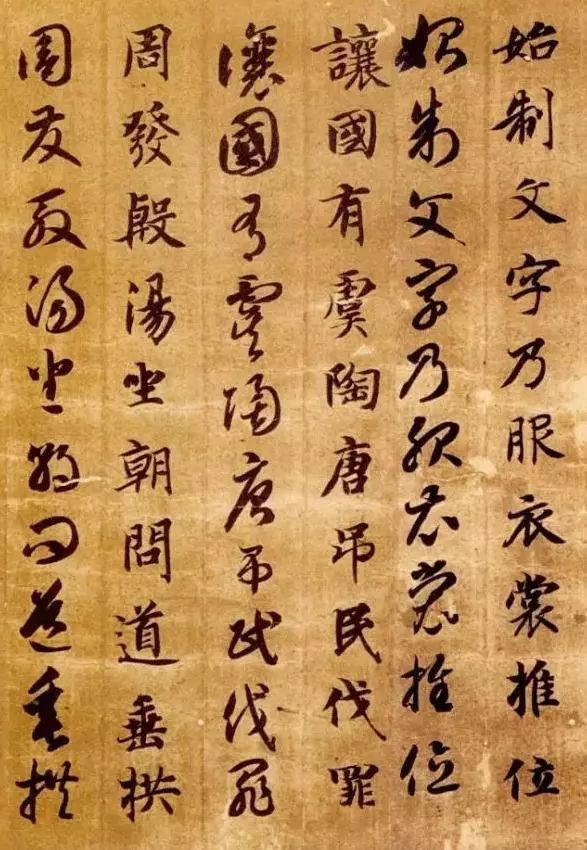 始制文字乃服衣裳推位
始制文字乃服衣裳推位
讓國有虞陶唐吊民伐罪
讓國有虞陶唐吊民伐罪
周發殷湯坐朝問道垂拱
周發殷湯坐朝問道垂拱